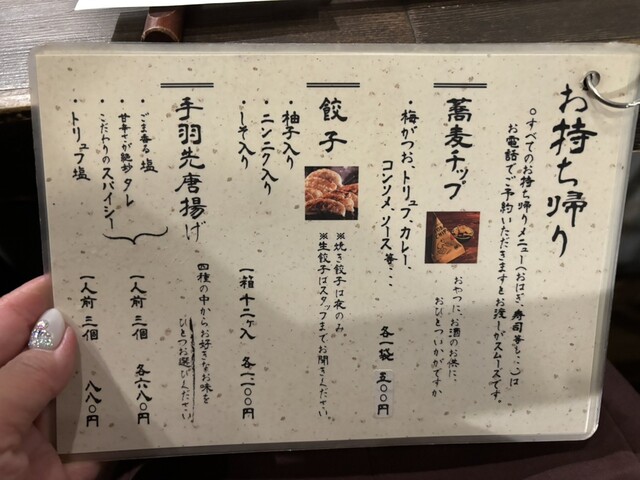 お持ち帰り
○すべてのお持ち帰りメニュー(おはぎ、寿司等も…)は
お電話でご予約いただきますとお渡しがスムースです。
蕎麦チップ
おやつに、お酒のお供に、
おひとついかがですか
・梅がつお、トリュフ、カレー、
コンソメ、ソース等…
各一袋 五〇〇円
餃子
※焼き餃子は夜のみ
※生餃子はスタッフまでお聞きください。
・柚子入り
・ニンニク入り
・しそ入り
一箱 十二ヶ入 各一一〇〇円
手羽先唐揚げ
四種の中からお好きなお味を
ひとつお選びください
・ごま香る塩
・甘辛さが絶妙タレ
・こだわりのスパイシー
一人前 三個 各六八〇円
・トリュフ塩
一人前 三個 八八〇円